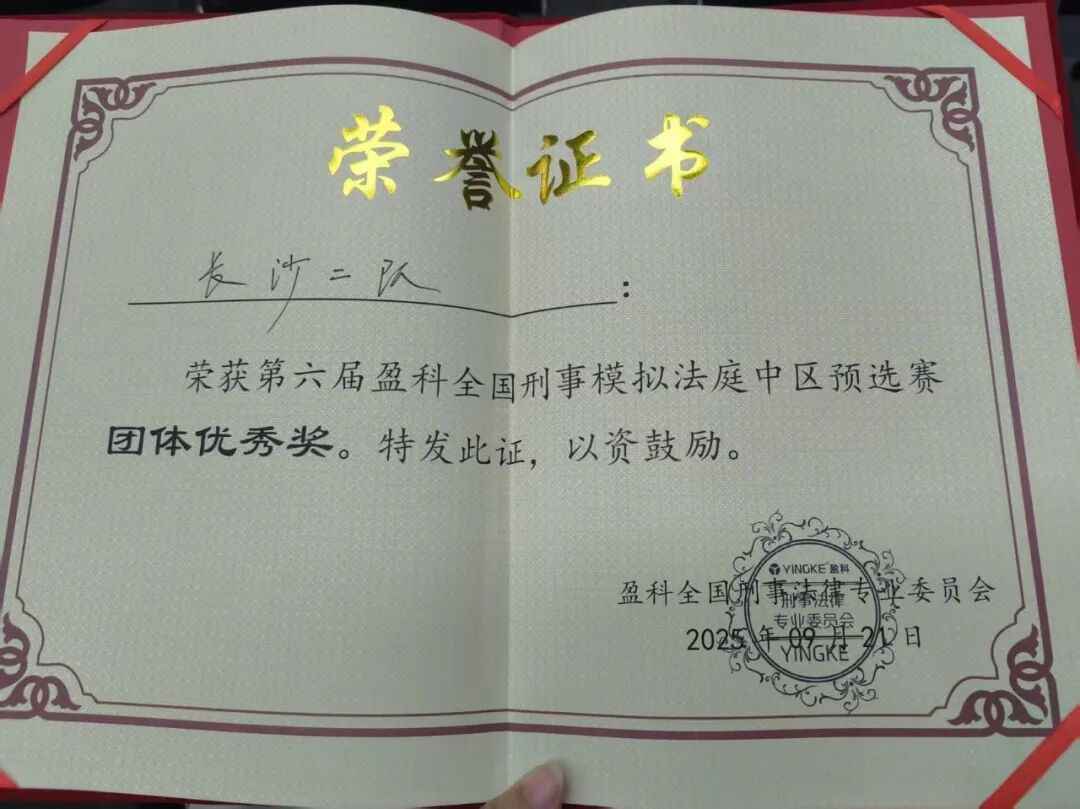 荣誉证书
长沙二队:
荣获第六届盈科全国刑事模拟法庭中区预选赛
团体优秀奖。特发此证，以资鼓励。
盈科全国刑事法律专业委员会
2025年09月21日
YINGKE 盈科
刑事法律
专业委员会
YINGKE